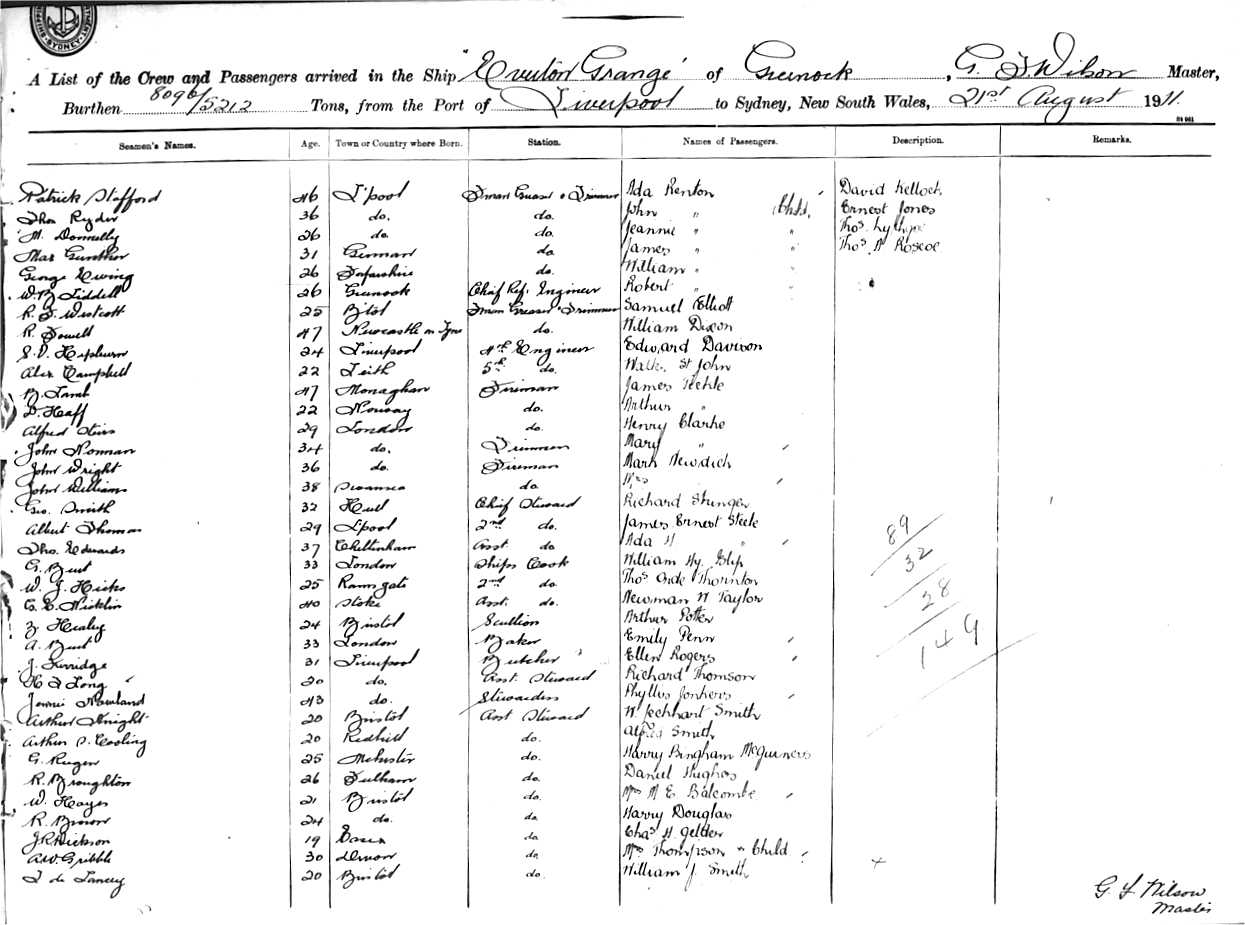 SYDNEY
A List of the Crew and Passengers arrived in the Ship "Everton Grange" of Greenock, G. F. Wilson Master,
Burthen 8096/5212 Tons, from the Port of Liverpool to Sydney, New South Wales, 21st August 1911.
Seamen's Names. Age. Town or Country where Born. Station. Names of Passengers. Description. Remarks.
Patrick Stafford 46 L'pool Fman Greaser & Trimmer Ada Renton David Kelloch
Thos Ryder 36 do. do. John " Child. Ernest Jones
M. Donnelly 26 do. do. Jeannie " " Thos. Lythgoe
Thos Gunther 31 German do. James " " Thos. A Roscoe
George Ewing 26 Forfarshire do. William " "
W. B. Liddell 26 Greenock Chief Ref. Engineer Robert " "
R. J. Westcott 25 B'tol Fman Greaser & Trimmer Samuel Elliott
R. Fowell 47 Newcastle on Tyne do. William Dixon
S. D. Hepburn 24 Liverpool 4th Engineer Edward Davison
Alex Campbell 22 Leith 5th do. Walk. St John
B. Lamb 47 Monaghan Fireman James
D. Heaff 22 Norway do. Arthur "
Alfred 29 London do. Henry Clarke
John Norman 34 do. Trimmer Mary "
John Wright 36 do. Fireman Mark
John Williams 38 Swansea do Mrs
Geo. Smith 32 Hull Chief Steward Richard Stringer
Albert Thomas 29 L'pool 2nd do. James Ernest Steele
Thos. Edwards 37 Cheltenham Asst do Ada H "
G. Burt 33 London Ships Cook William Hy.
W. J. Hicks 25 Ramsgate 2nd do. Thos Orde Thornton
G. E. Nicklin 40 Stoke Asst. do. Newman W Taylor
Z Healey 24 Bristol Scullion Arthur Potter
A. Burt 33 London Baker Emily Penn
J. Furridge 31 Liverpool Butcher Ellen Rogers
H J Long 20 do. Asst. Steward Richard Thomson
Jennie Newland 43 do. Stewardess Phyllis Jonkers
Arthur Knight 20 Bristol Asst Steward W. Lechhart Smith
Arthur S. Cooling 20 Redhill do. Alfred Smith
G. Ruger 25 do. Harry Bingham McGuiness
R. Broughton 26 Fulham do. Daniel Hughes
W. Hayes 21 Bristol do. Mrs M E Balcombe
R. Brown 24 do. do. Harry Douglas
J R Dickson 19 Essex do Chas. H. Gelder
A.W. Gribble 30 Devon do. Mrs Thompson & Child
J de Lancey 20 Bristol do. William J. Smith
89
32
28
149
G. F. Wilson
Master